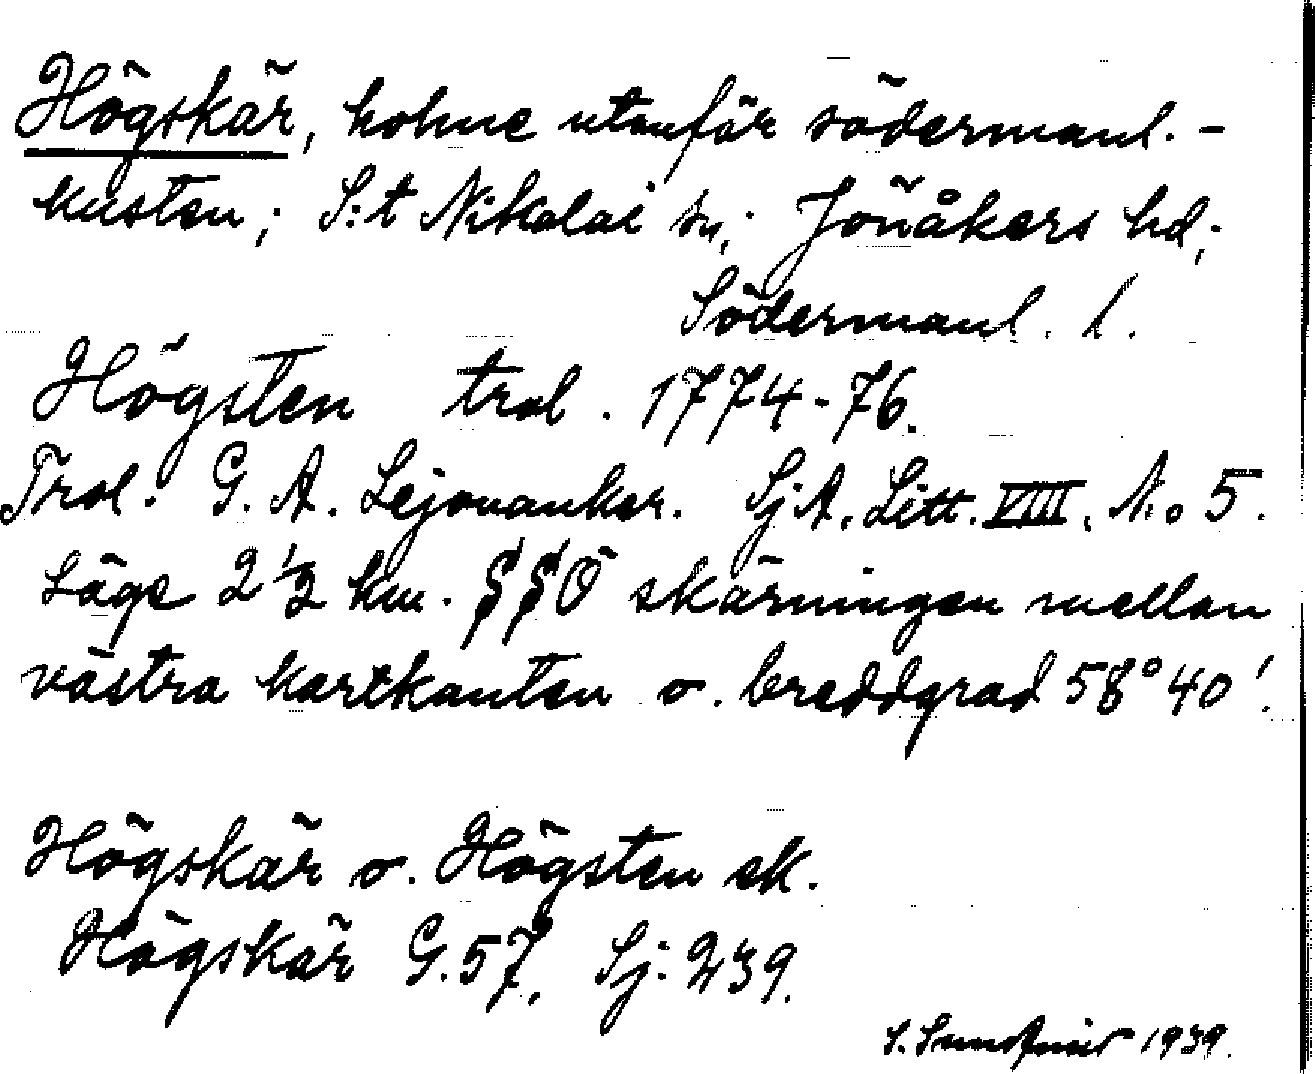 Högskär, holme utanför södermanl.-
kusten; S:t Nikolai sn; Jönåkers hd;
Södermanl. l.
Högsten trol. 1774-76.
Trol. G. A. Lejonanker. SjA. Litt. VIII. No 5.
Läge 2 1/2 km. SSÖ skärningen mellan
västra kartkanten o. breddgrad 58° 40'.
Högskär o. Högsten ek.
Högskär G. 57, Sj: 239.
1939.